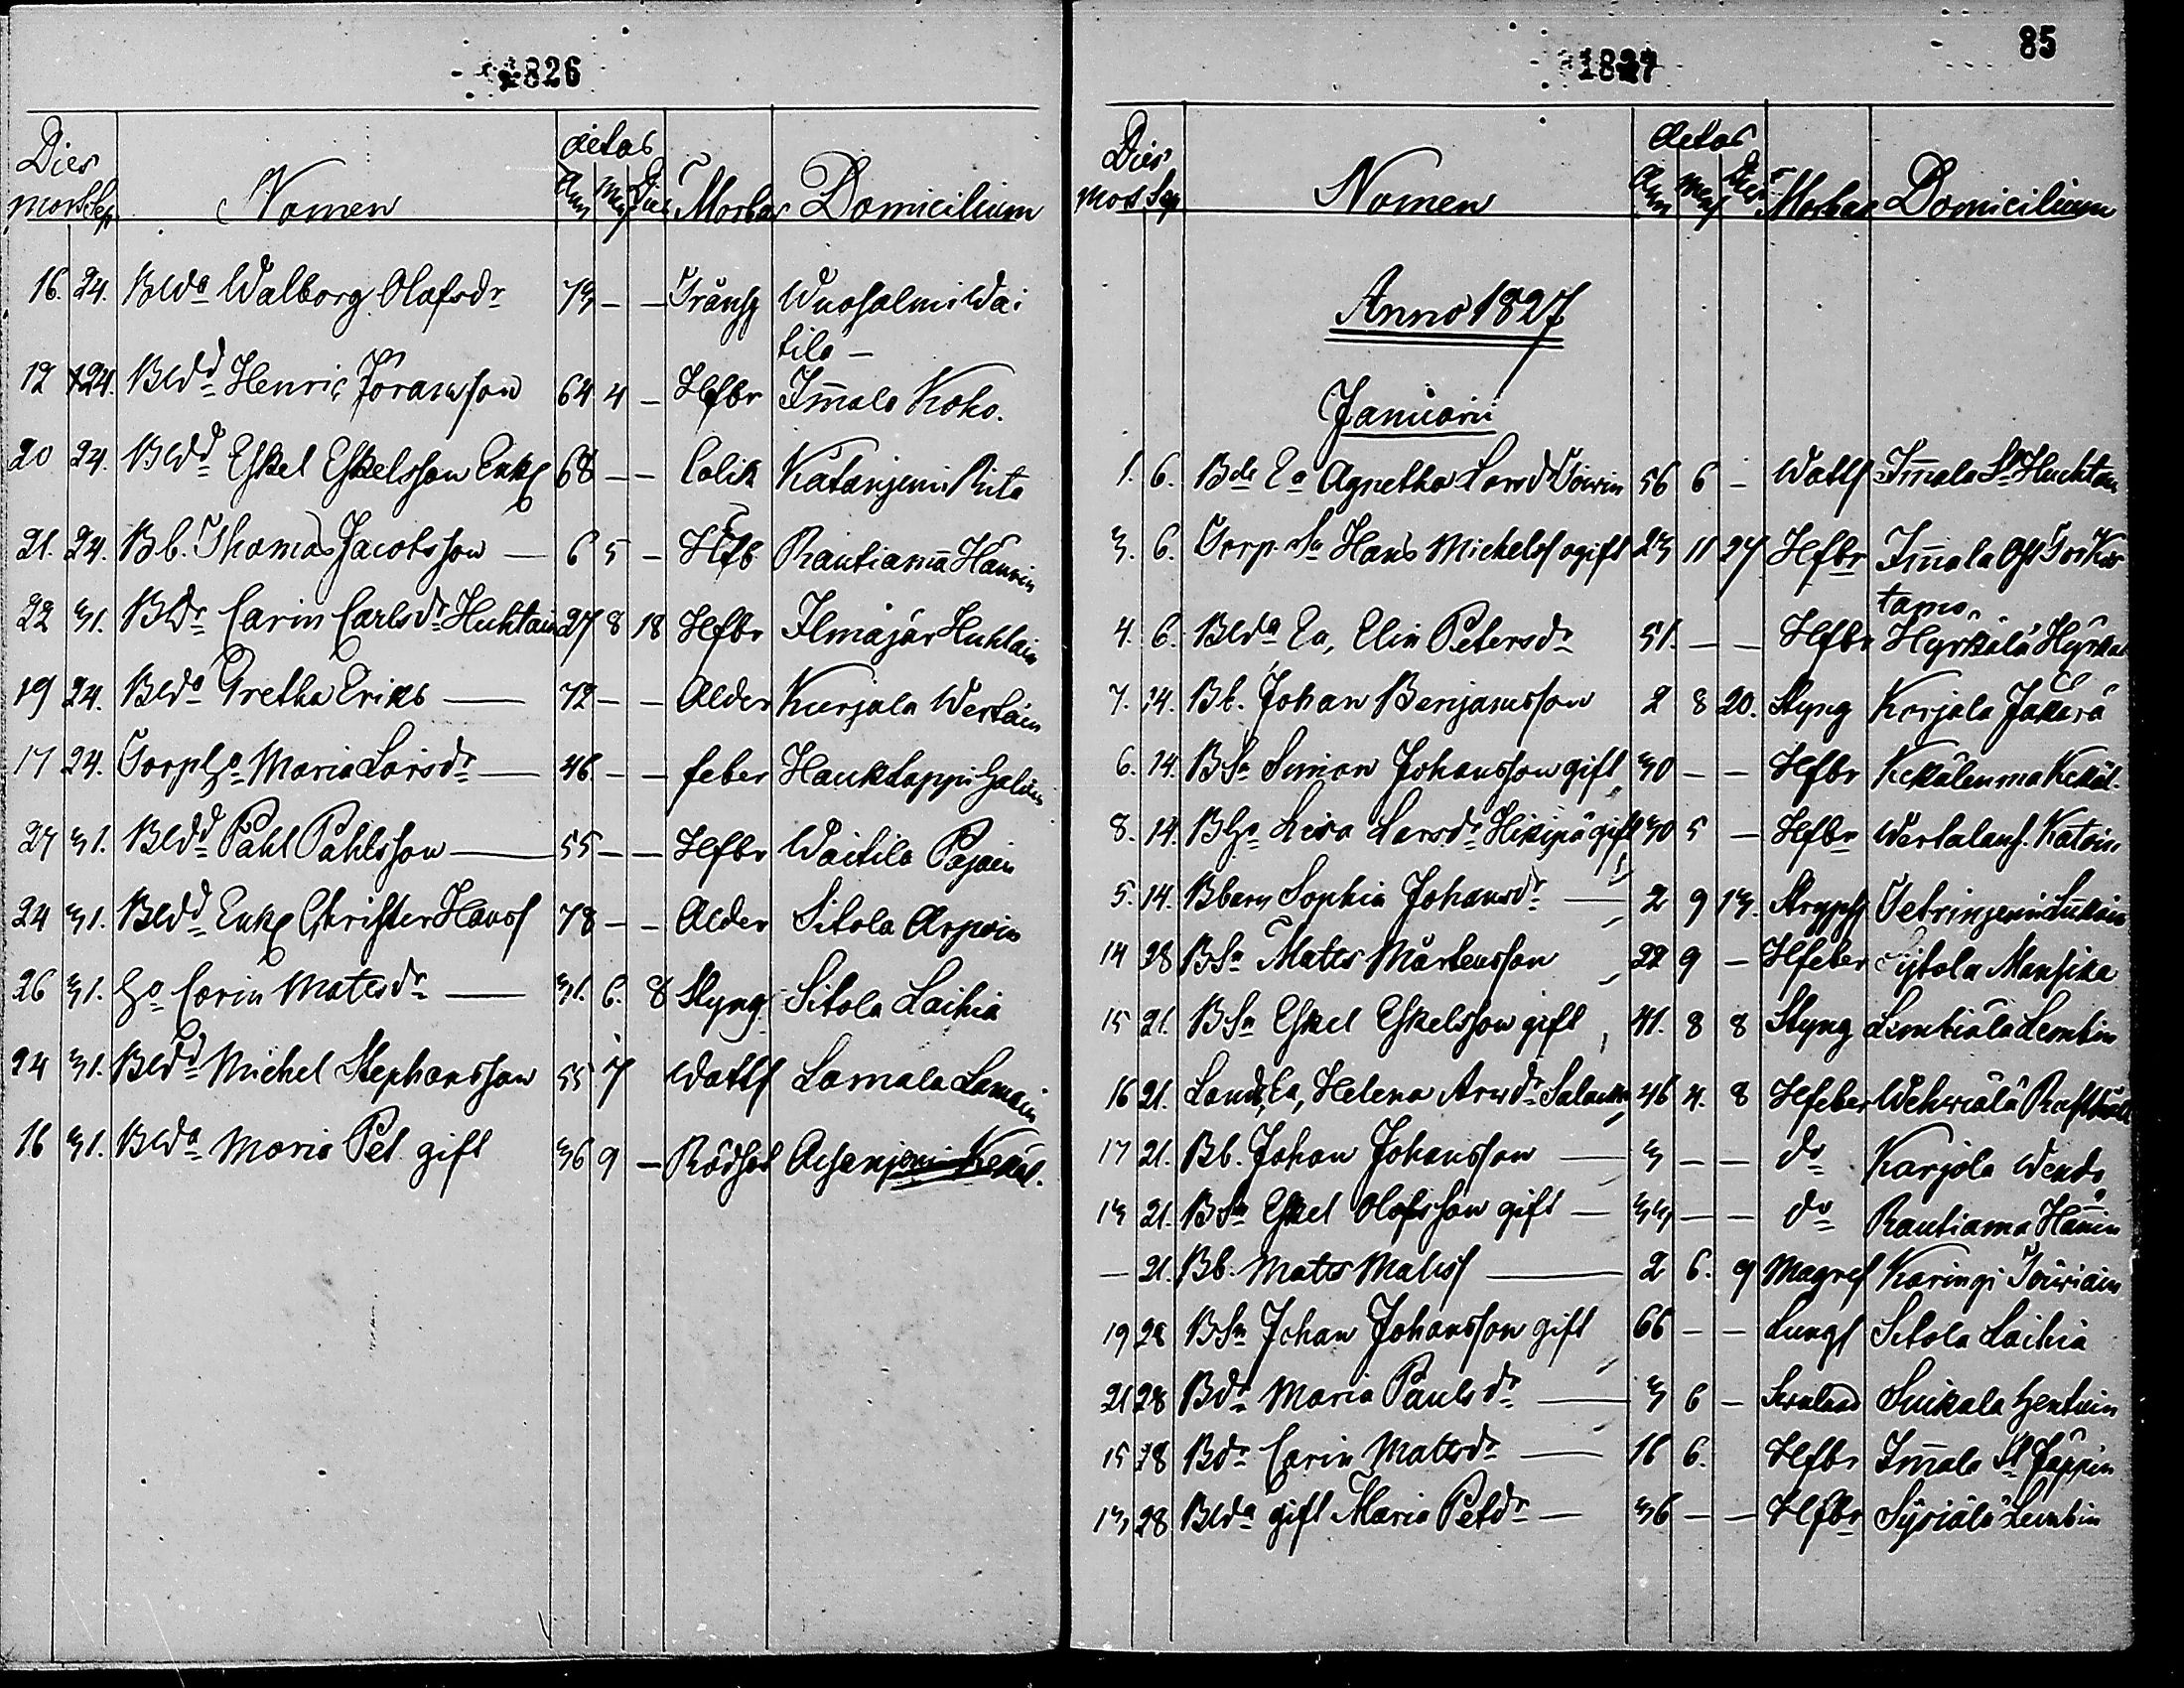 1826
Dies
aetas
mort Sep Nomen Ann Mens Dies Morbus Domicilium
16. 24. Blda Walborg Olofsdr 73 — — Tränsj Wuosalmi Wai
tila —
12 24. Bldd Henric Göransson 64 4 — Hfbr Im̄ala Koko.
20 24. Bldd Eskel Eskelsson Enkl 68 — — Colik Kätänjemi Rita
21. 24. Bb. Thomas Jacobsson — 6 5 — Hfb Rautiam̄a Hännin
22 31. Bdr Carin Carlsdr Huhtain 27 8 18 Hfbr Ilmajär Huhtain
19 24. Blda Gretha Eriks — 72 — — Ålder Kurjala Wertain
17 24. Torp Ha Maria Larsdr — 46. — — feber Hauklappi Halin
27 31. Bldd Påhl Påhlsson — 55 — — Hfbr Waitila Pajain
24 31. Bldd Enkl Christer Hanss 78 — — Ålder Sitola Arpain
26 31. Ha Carin Matsdr — 31. 6. 8 Styng Sitola Laihia
24 31. Bldd Michel Stephansson 55 7 Watts Lamala Lamain
16 31. Blda Maria Pet. gift 36 9 — Rödsot Ahsanjemi Kekäl.
85
1827
Dies
aetas
Mort Sep Nomen Ann Mens Dies Morbus Domicilium
Anno 1827
Januarii
1. 6. Bdr Ea Agnetha Larsdr Toivin 56 6 — Watts Im̄ala Huchtan
3. 6. Torp. Sn Hans Michelss ogift 23 11 27 Hfbr Im̄ala
tamo.
4. 6. Blda Ea, Elin Petersdr 51. — — Hfbr Hyrkälä Hyrkä
7. 14. Bb. Johan Benjamsson 2 8 20. Styng Korjala Jäkärä
6. 14. BSn Simon Johansson gift 30 — — Hfbr Kekälenma Kekäl.
8. 14. BHa Lisa Larsdr Hikipä gift 30 5 — Hfbr Wertalans. Katoin
5. 14. Bbarn Sophia Johansdr — 2 9 13. Strypsj Tetrinjemi Lukain
14 28 BSn Mats Mårtensson 22 9 — Hfeber Sytola Mansika
15 21. BSn Eskel Eskelsson gift 41. 8 8 Styng Lembiälä Lembin
16 21. Ea, Helena Arwdr 46 4. 8 Hfeber Wehwiälä
17 21. Bb. Johan Johansson — 3 — — do Karjola Wendo
13 21. BSn Eskel Olofsson gift — 33 — — do Rautiama Hänin
— 21. Bb. Mats Matss — 2 6. 9 Magref Karingi Toiwiain
19 28 BSn Johan Johansson gift 66 — — Lungs Sitola Laihia
21 28 Bdr Maria Paulsdr — 3 6 — Suikala Hentuin
15 28 Bdr Carin Mattsdr — 16 6. Hfbr Im̄ala Jäppin
13 28 Blda gift Maria Petdr — 36 — — Hfbr Syriälä Lembin